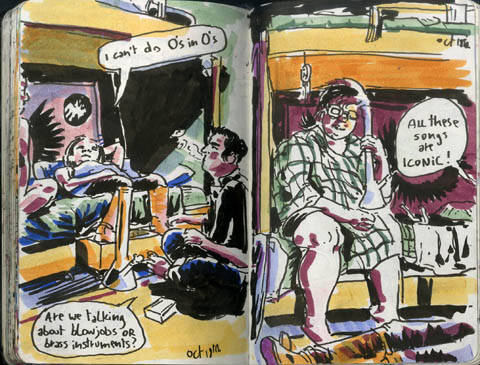 i can't do O's in O's
Are we talking
about blowjobs OR
brass instruments?
oct
oct
All these
songs
are
ICONIC!